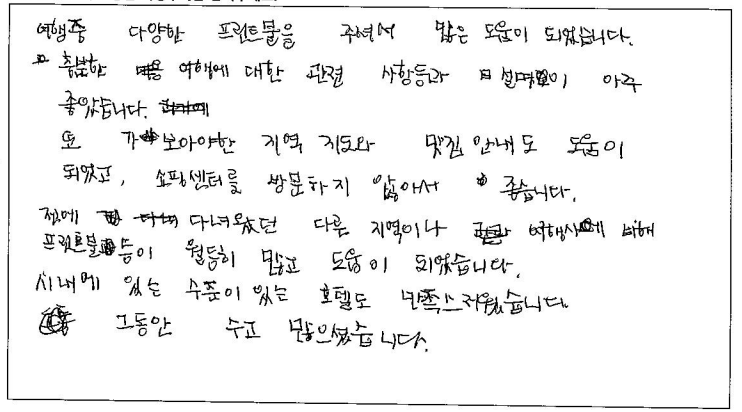 여행중 다양한 프린트물을 주여서 많은 도움이 되었습니다.
충분한 여행에 대한 관련 사항등과 설명이 아주
좋았습니다.
또 가 보아야한 지역 지도와 맛집 안내도 도움이
되었고, 쇼핑센터를 방문하지 않아서 좋습니다.
전에 다녀왔던 다른 지역이나 여행사에 비해
프린트물등이 월등히 많고 도움이 되었습니다.
시내에 있는 수준이 있는 호텔도 만족스러웠습니다
그동안 수고 많으셨습니다.